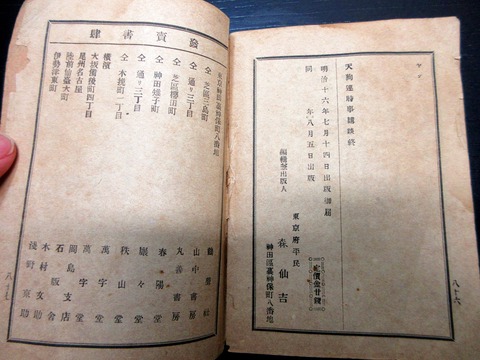 天狗連時事講談終
明治十六年七月十四日出版御届
同 年八月五日出版
東京府平民
編輯兼出版人 森 仙吉
神田區裏神保町八番地
定價金廿錢
八十六
發賣書肆
東京神田區裏神保町八番地
仝 芝區三島町 山中書房
仝 通り三丁目 丸善書房
仝 芝區櫻田町 春陽堂
仝 神田雉子町 巖々堂
仝 通り三丁目
仝 木挽町一丁目
橫濱 萬字堂
大坂備後町四丁目 岡島支店
尾州名古屋
陸前仙臺大町 木村文助
伊勢津東町
八十七